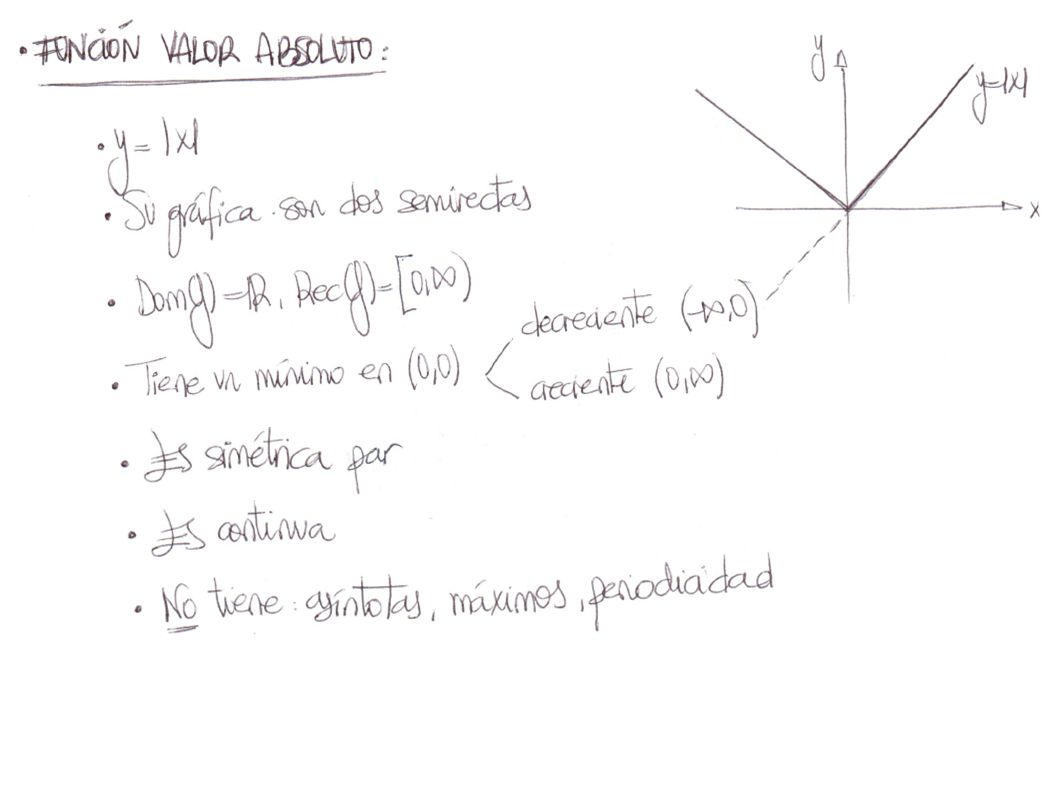 • FUNCIÓN VALOR ABSOLUTO:
• y = |x|
• Su gráfica son dos semirectas
• Dom(f) = ℝ, Rec(f) = [0,∞)
• Tiene un mínimo en (0,0)
decreciente (-∞,0]
creciente (0,∞)
• Es simétrica par
• Es continua
• No tiene: asíntotas, máximos, periodicidad
y
y=|x|
x